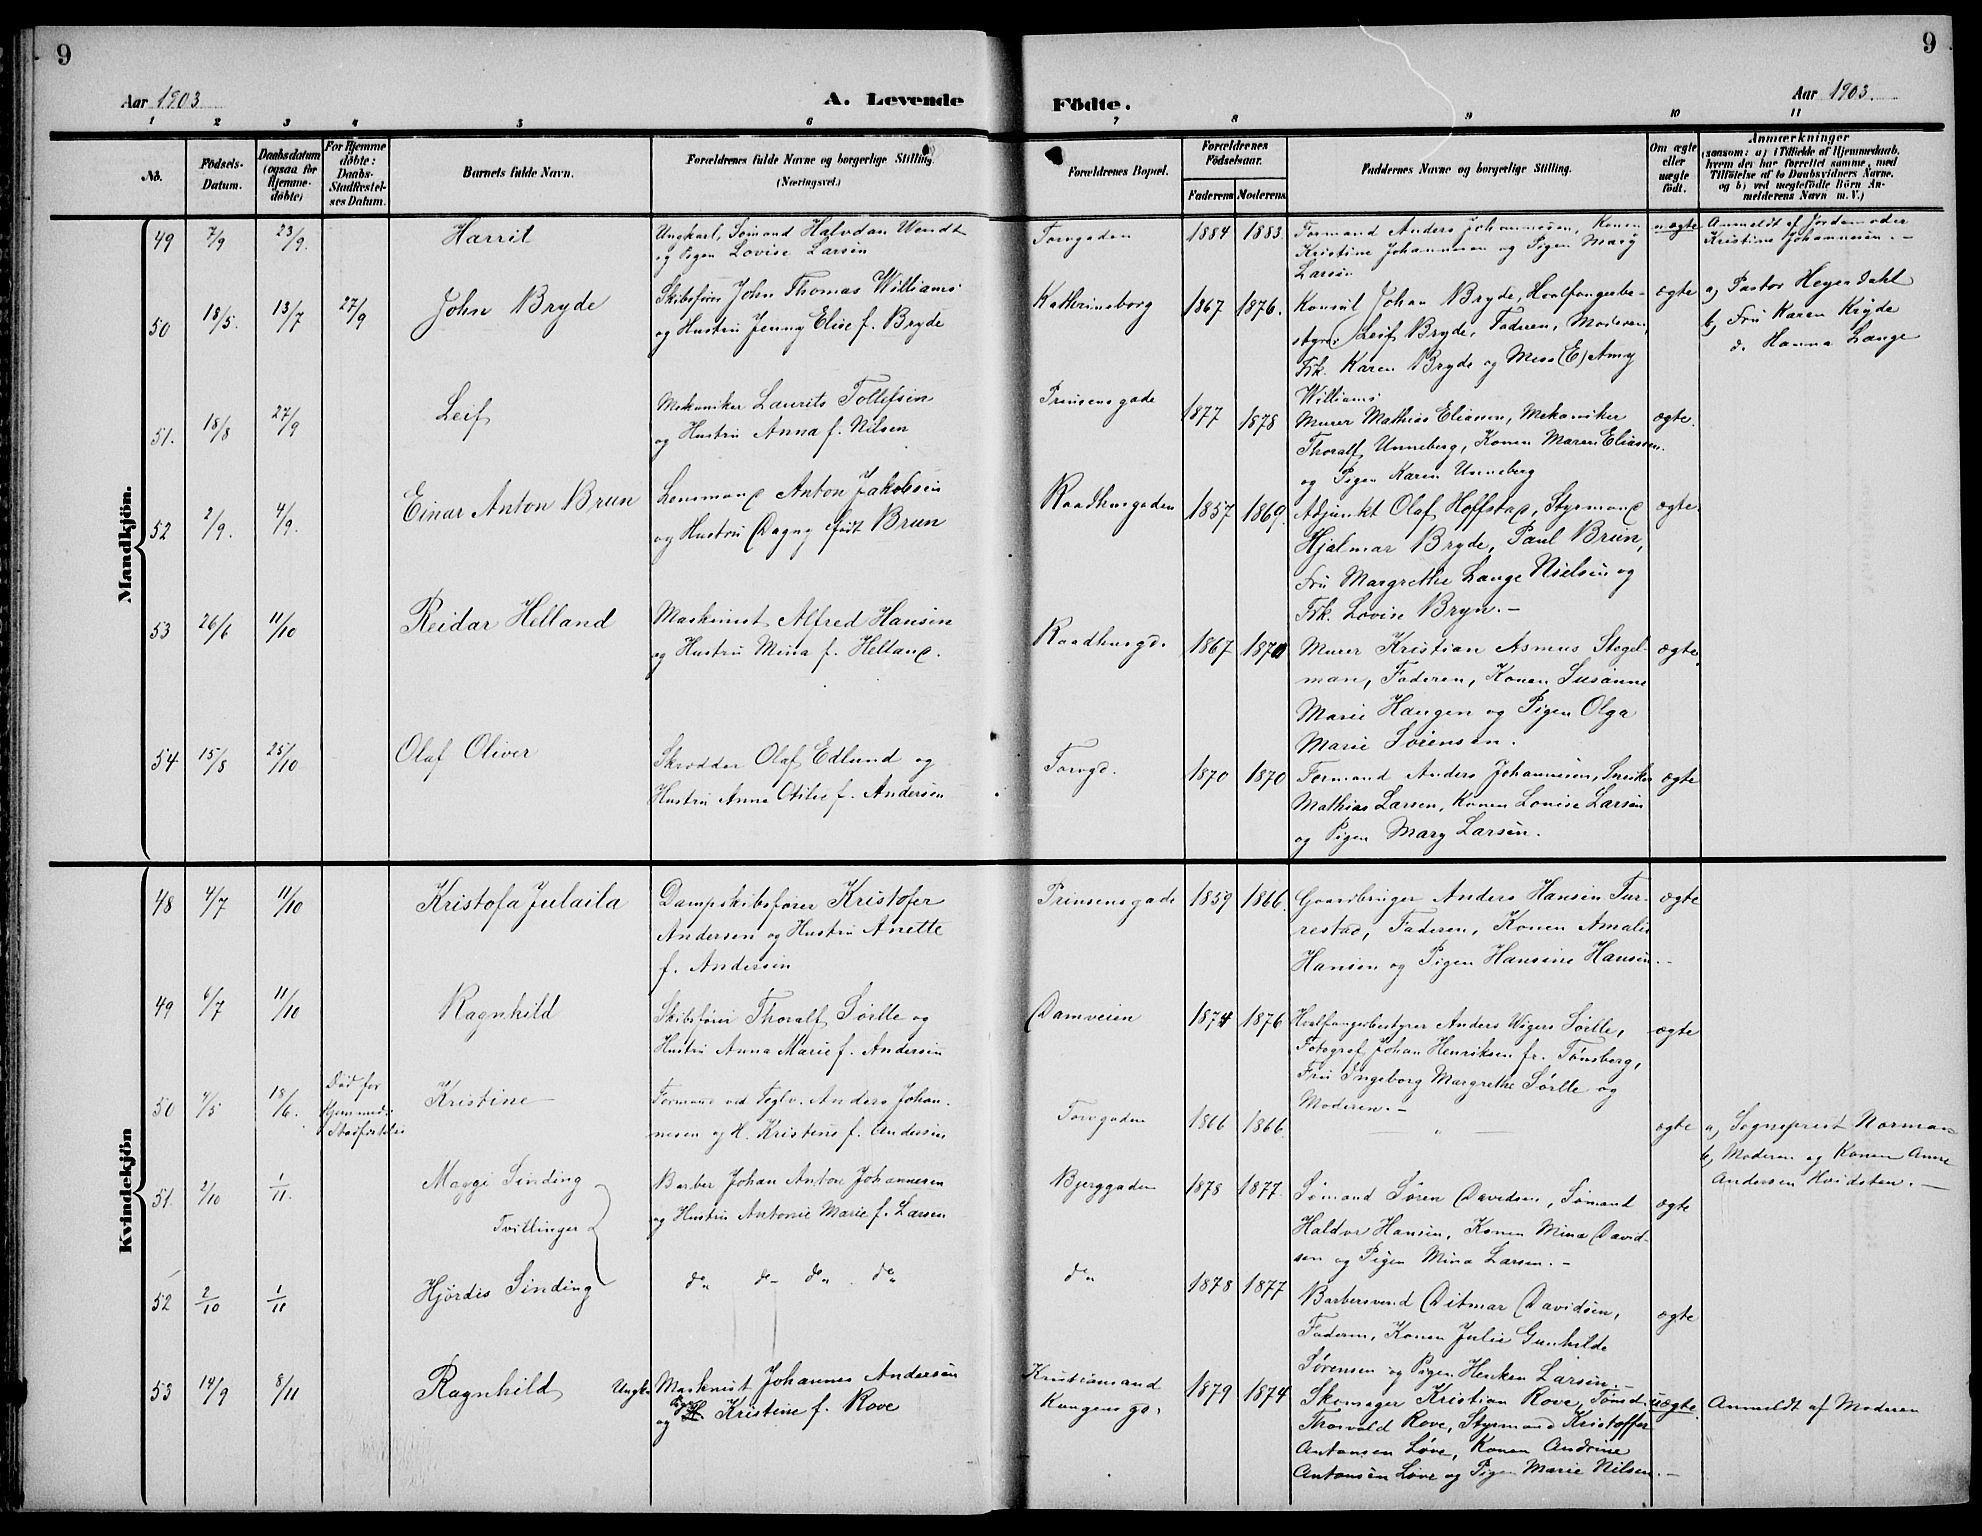 9
9
Aar 1903
A. Levende
Födte.
Aar 1903.
1
2
3
4
5
6
7
8
9
10
11
No.
Födsels-
Datum.
Daabsdatum
(ogsaa for
Hjemme-
døbte)
For Hjemme
døbte:
Daabs-
Stadfæstel-
ses Datum.
Barnets fulde Navn.
Forældrenes fulde Navne og borgerlige Stilling.
(Næringsvei.)
Forældrenes Bopæl.
Forældrenes
Födselsaar.
Faderens
Moderens
Faddernes Navne og borgerlige Stilling.
Om ægte
eller
uægte
født.
Anmærkninger
(saasom: a) i Tilfælde af Hjemmedaab,
hvem der har forrettet samme, med
Tilføielse af to Daabsvidners Navne,
og b) ved uægtefödte Börn An-
melderens Navn m. V.)
Mandkjön.
49
7/9
23/9.
Harril
Ungkarl, Sömand Halvdan Wendt
og Pigen Lovise Larsen
Torvgaden
1884
1883.
Formand Anders Johannesen, Konen
Kristine Johannesen og Pigen Mary
Larsen
uægte
Anmeldt af Jordemoder
Kristine Johannesen. -
50
18/5.
13/7
27/9
John Bryde
Skibsfører John Thomas Williams
og Hustru Jenny Elise f. Bryde
Kathrinsborg
1867
1876.
Konsul Johan Bryde, Hvalfangerbe-
styrer Leif Bryde, Faderen, Moderen,
Frk. Karen Bryde og Miss (E) Amy
Williams
ægte
a, Pastor Heyerdahl
b, Fru Karen Kryde
d. Hanna Lange
51.
18/8
27/9
Leif
Mekaniker Laurits Tollefsen
og Hustru Anna f. Nilsen
Prinsensgade
1877
1878
Murer Mathias Eliasen, Mekaniker
Thoralf Unneberg, Konen Maren Eliasen
og Pigen Karen Unneberg
ægte.
52
2/9.
4/9.
Einar Anton Brun
Lensmand Anton Jakobsen
og Hustru Dagny født Brun
Raadhusgaden
1857
1869.
Adjunkt Olaf Hoffstad, Styrmand
Hjalmar Bryde, Paul Brun,
Fru Margrethe Lange Nielsen og
Frk. Lovise Bryn. -
ægte.
53
26/6
11/10
Reidar Helland
Maskinist Alfred Hansen
og Hustru Mina f. Helland.
Raadhusgd.
1867
1870
Murer Kristian Asmus Stegel-
man, Faderen, Konen Susanne
Marie Haugen og Pigen Olga
Marie Sørensen.
ægte.
54
15/8
25/10
Olaf Oliver
Skrædder Olaf Edlund og
Hustru Anna Otilie f. Andersen
Torvgd.
1870
1870
Formand Anders Johannesen, Snekker
Mathias Larsen, Konen Lovise Larsen
og Pigen Mary Larsen.
ægte
Kvindekjön
48
4/7
11/10
Kristofa Julaila
Dampskibsfører Kristofer
Andersen og Hustru Anette
f. Andersen
Prinsensgade
1859
1866.
Gaardbruger Anders Hansen Fur-
restad, Faderen, Konen Amalie
Hansen og Pigen Hansine Hansen. -
ægte
49
6/7
11/10
Ragnhild
Skibsfører Thoralf Sørlle og
Hustru Anna Marie f. Andersen
Damveien
1874
1876
Hvalfangerbestyrer Anders Wigers Sørlle,
Fotograf Johan Henriksen fr. Tønsberg,
Fru Ingeborg Margrethe Sørlle og
Moderen. -
ægte
50
4/5
18/6.
Død før
Hjemmed.
Stadfæstelse
Kristine
Formand ved Teglv. Anders Johan-
nesen og H. Kristine f. Andersen
Torvgaden
1866
1866.
— " —
ægte
a, Sogneprest Norman
b, Moderen og Konen Anne
Andersen Hvidsten. -
51.
2/10
1/11.
Maggi Sinding
Tvillinger
Barber Johan Anton Johannesen
og Hustru Antonie Marie f. Larsen
Bjerggaden
1878
1877.
Sømand Søren Davidsen, Sømand
Haldor Hansen, Konen Mina David-
sen og Pigen Mina Larsen. -
ægte
52
2/10
1/11
Hjørdis Sinding
do do do do
do
1878
1877
Barbersvend Ditmar Davidsen,
Faderen, Konen Julie Gunhilde
Sørensen og Pigen Henken Larsen. -
ægte
53
14/9
8/11
Ragnhild
Ungk. Maskinist Johannes Andersen
og Pige H Kristine f. Rove
Kristiansand
Kongensgd.
1879
1874
Skomager Kristian Rove, Tømd.
Thorvald Rove, Styrmand Kristoffer
Antonsen Løve, Konen Andrine
Antonsen Løve og Pigen Marie Nilsen. -
uægte.
Anmeldt af Moderen